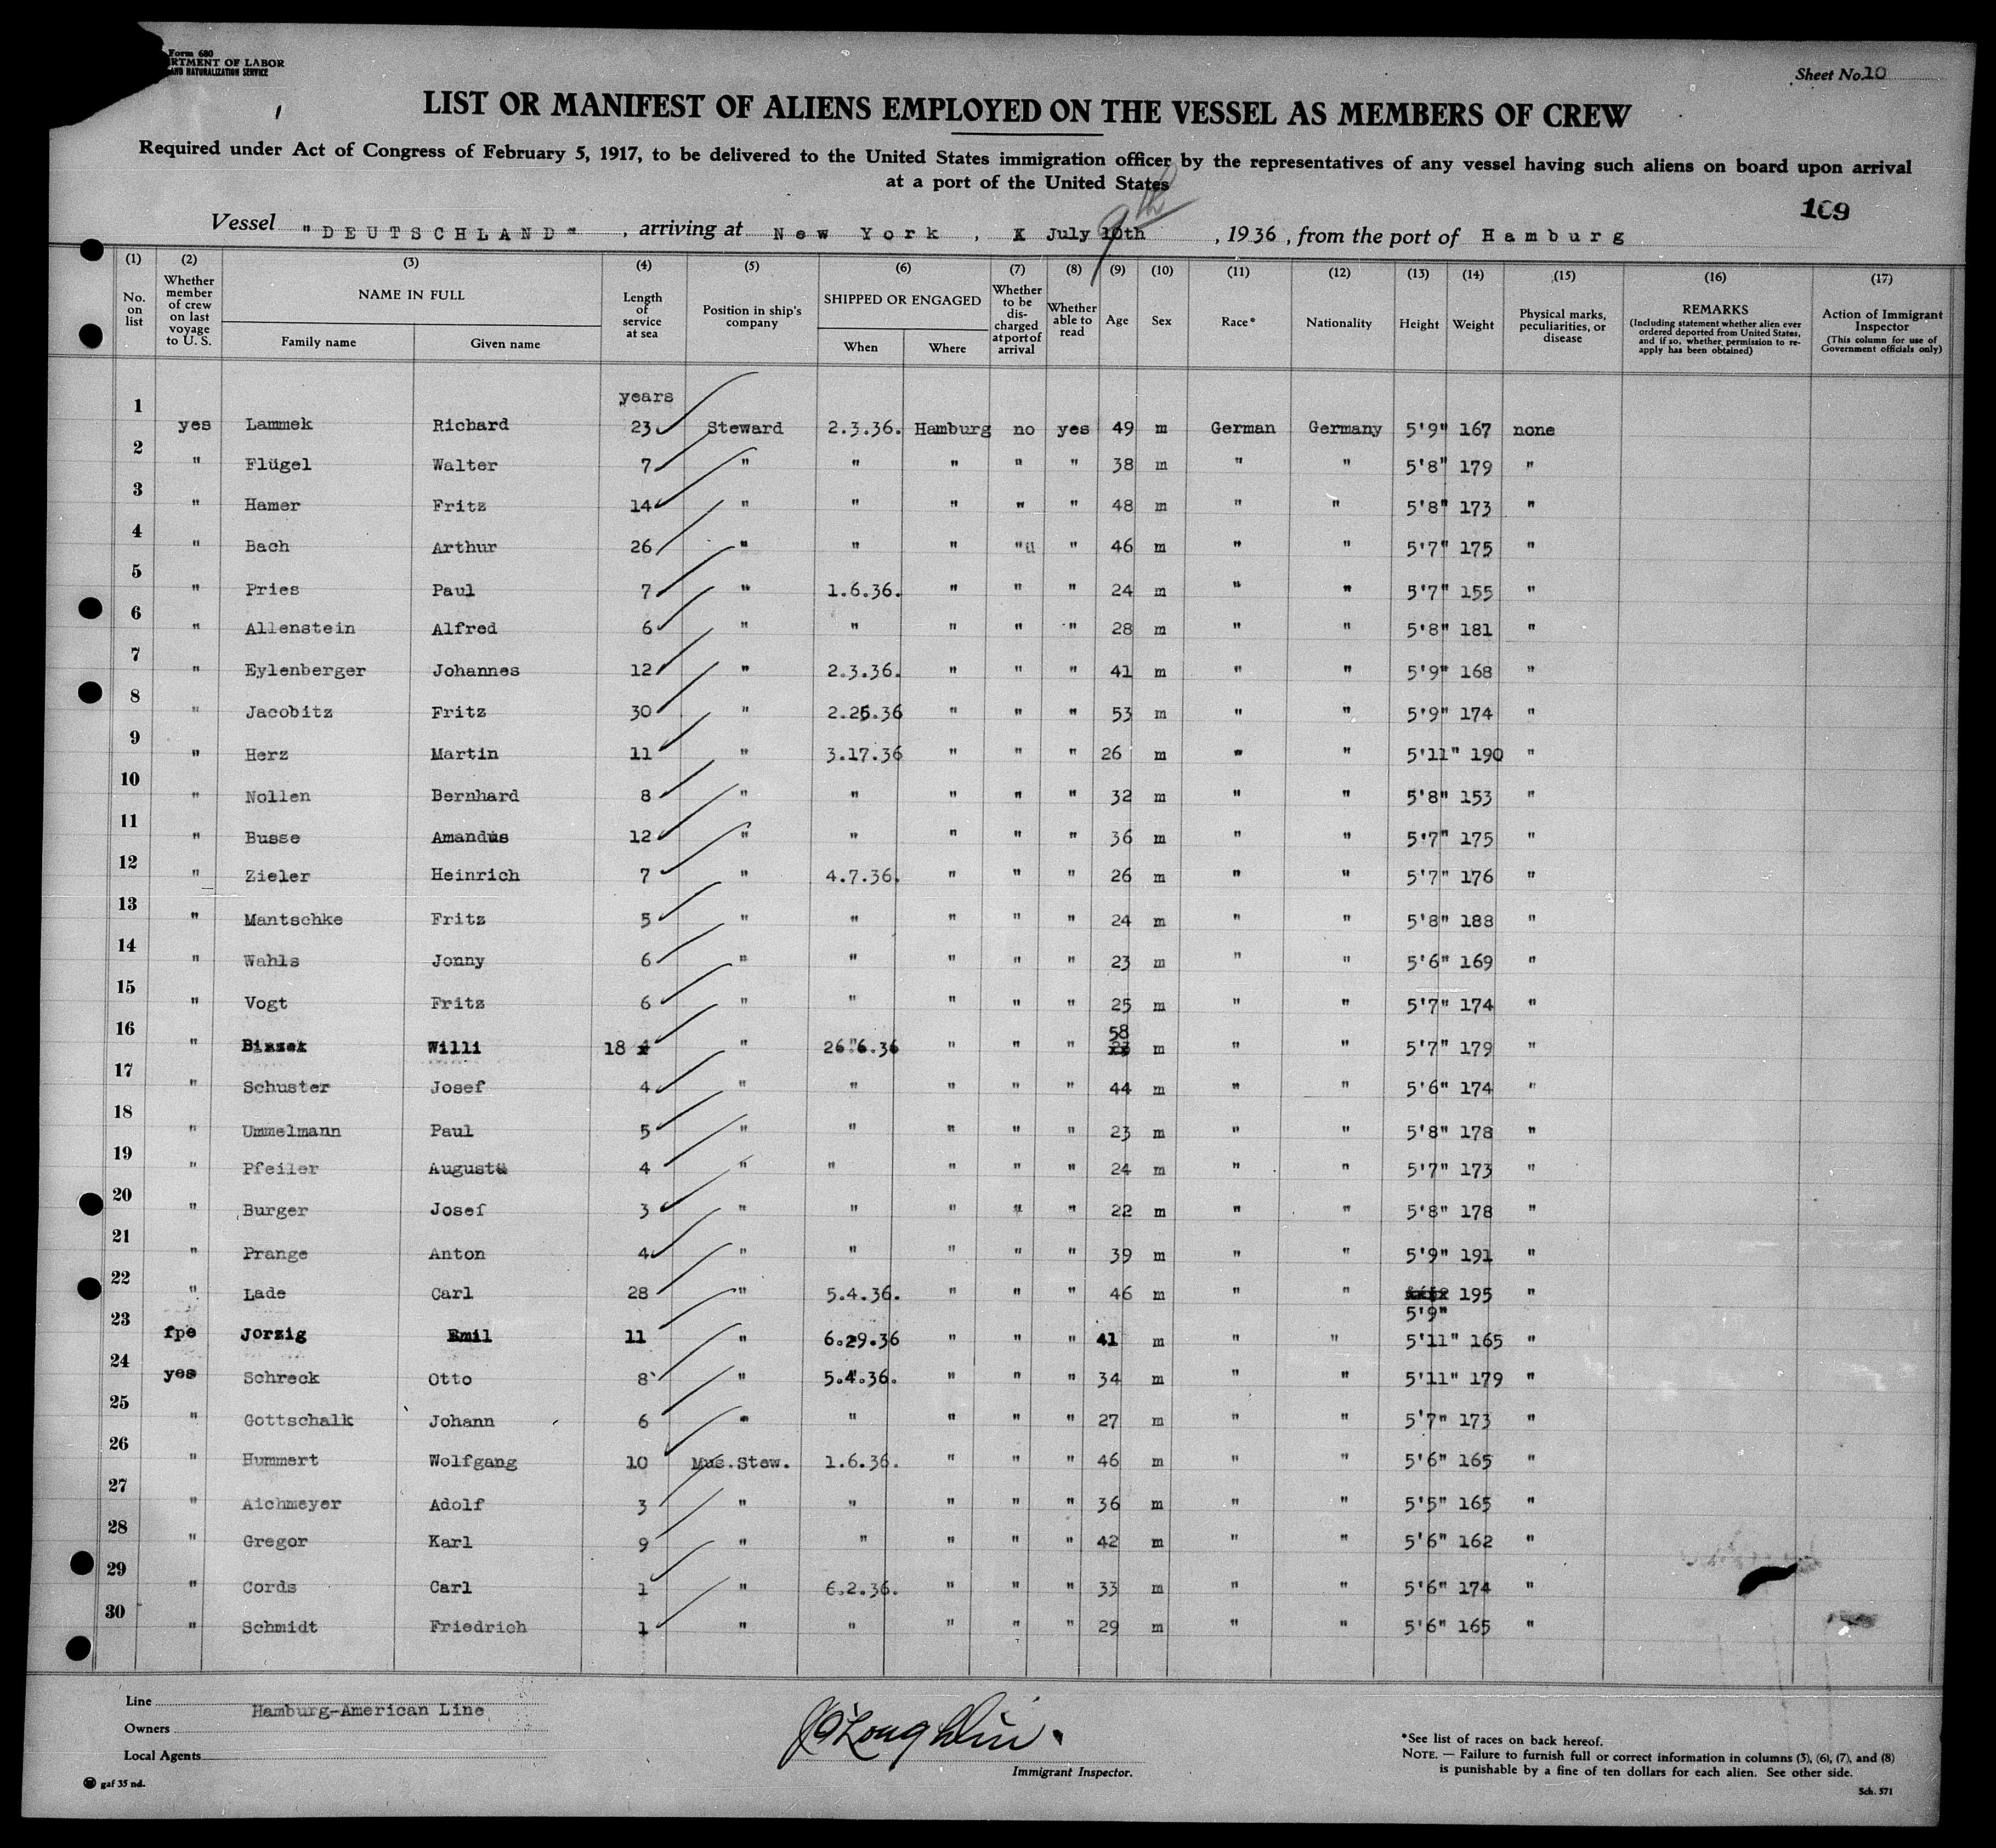 Form 680
RTMENT OF LABOR
AND NATURALIZATION SERVICE
Sheet No. 10
LIST OR MANIFEST OF ALIENS EMPLOYED ON THE VESSEL AS MEMBERS OF CREW
Required under Act of Congress of February 5, 1917, to be delivered to the United States immigration officer by the representatives of any vessel having such aliens on board upon arrival
at a port of the United States
169
9th
Vessel "DEUTSCHLAND", arriving at New York, X July 10th, 1936, from the port of Hamburg
(1) (2) (3) (4) (5) (6) (7) (8) (9) (10) (11) (12) (13) (14) (15) (16) (17)
No. on list
Whether member of crew on last voyage to U. S.
NAME IN FULL
Family name Given name
Length of service at sea
Position in ship's company
SHIPPED OR ENGAGED
When Where
Whether to be discharged at port of arrival
Whether able to read
Age
Sex
Race*
Nationality
Height
Weight
Physical marks, peculiarities, or disease
REMARKS
(Including statement whether alien ever ordered deported from United States, and if so, whether permission to re-apply has been obtained)
Action of Immigrant Inspector
(This column for use of Government officials only)
years
1 yes Lammek Richard 23 Steward 2.3.36. Hamburg no yes 49 m German Germany 5'9" 167 none
2 " Flügel Walter 7 " " " " " 38 m " " 5'8" 179 "
3 " Hamer Fritz 14 " " " " " 48 m " " 5'8" 173 "
4 " Bach Arthur 26 " " " " " 46 m " " 5'7" 175 "
5 " Pries Paul 7 " 1.6.36. " " " 24 m " " 5'7" 155 "
6 " Allenstein Alfred 6 " " " " " 28 m " " 5'8" 181 "
7 " Eylenberger Johannes 12 " 2.3.36. " " " 41 m " " 5'9" 168 "
8 " Jacobitz Fritz 30 " 2.25.36 " " " 53 m " " 5'9" 174 "
9 " Herz Martin 11 " 3.17.36 " " " 26 m " " 5'11" 190 "
10 " Nollen Bernhard 8 " " " " " 32 m " " 5'8" 153 "
11 " Busse Amandus 12 " " " " " 36 m " " 5'7" 175 "
12 " Zieler Heinrich 7 " 4.7.36. " " " 26 m " " 5'7" 176 "
13 " Mantschke Fritz 5 " " " " " 24 m " " 5'8" 188 "
14 " Wahls Jonny 6 " " " " " 23 m " " 5'6" 169 "
15 " Vogt Fritz 6 " " " " " 25 m " " 5'7" 174 "
16 " Willi 18 " 26.6.36 " " " 58 m " " 5'7" 179 "
17 " Schuster Josef 4 " " " " " 44 m " " 5'6" 174 "
18 " Ummelmann Paul 5 " " " " " 23 m " " 5'8" 178 "
19 " Pfeiler August 4 " " " " " 24 m " " 5'7" 173 "
20 " Burger Josef 3 " " " " " 22 m " " 5'8" 178 "
21 " Prange Anton 4 " " " " " 39 m " " 5'9" 191 "
22 " Lade Carl 28 " 5.4.36. " " " 46 m " " 5'9" 195 "
23 fpe Jorzig Emil 11 " 6.29.36 " " " 41 m " " 5'11" 165 "
24 yes Schreck Otto 8 " 5.4.36. " " " 34 m " " 5'11" 179 "
25 " Gottschalk Johann 6 " " " " " 27 m " " 5'7" 173 "
26 " Hummert Wolfgang 10 Mus.Stew. 1.6.36. " " " 46 m " " 5'6" 165 "
27 " Aichmeyer Adolf 3 " " " " " 36 m " " 5'5" 165 "
28 " Gregor Karl 9 " " " " " 42 m " " 5'6" 162 "
29 " Cords Carl 1 " 6.2.36. " " " 33 m " " 5'6" 174 "
30 " Schmidt Friedrich 1 " " " " " 29 m " " 5'6" 165 "
Line
Hamburg-American Line
Owners
Local Agents
gaf 35 nd.
J O'Loughlin.
Immigrant Inspector.
*See list of races on back hereof.
NOTE. — Failure to furnish full or correct information in columns (3), (6), (7), and (8)
is punishable by a fine of ten dollars for each alien. See other side.
Sch. 571